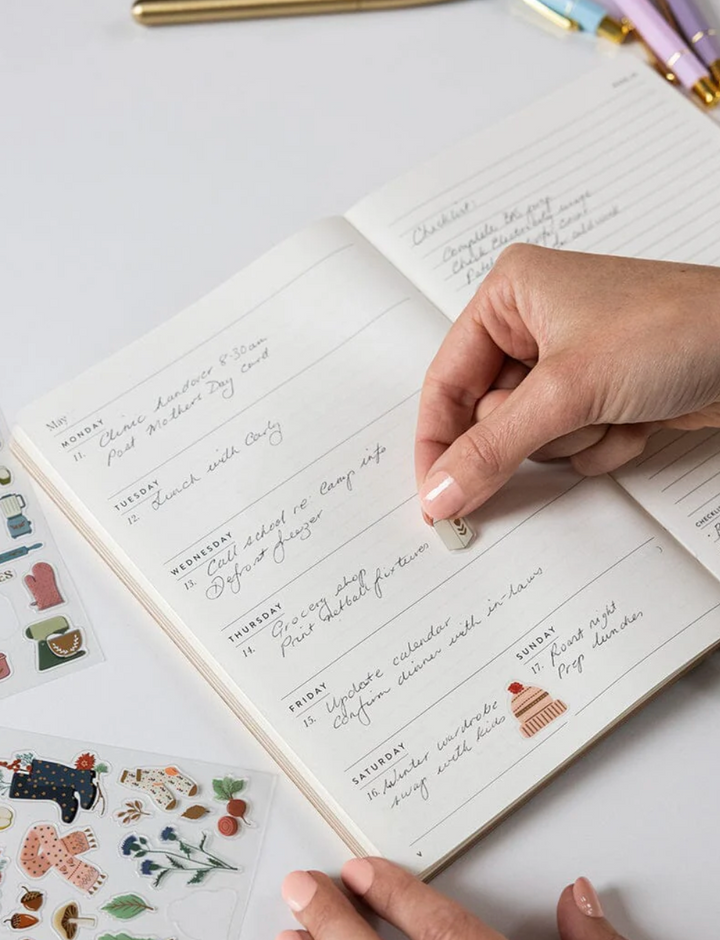 May
MONDAY
11. Clinic handover 8:30am
Post Mothers Day card
TUESDAY
12. Lunch with Carly
WEDNESDAY
13. Call school re: camp info
Defrost freezer
THURSDAY
14. Grocery shop
Print netball fixtures
FRIDAY
15. Update calendar
Confirm dinner with in-laws
SATURDAY
16. Winter wardrobe
swap with kids
SUNDAY
17. Roast night
Prep lunches
Checklist:
Complete
Check Electricity usage
Patch